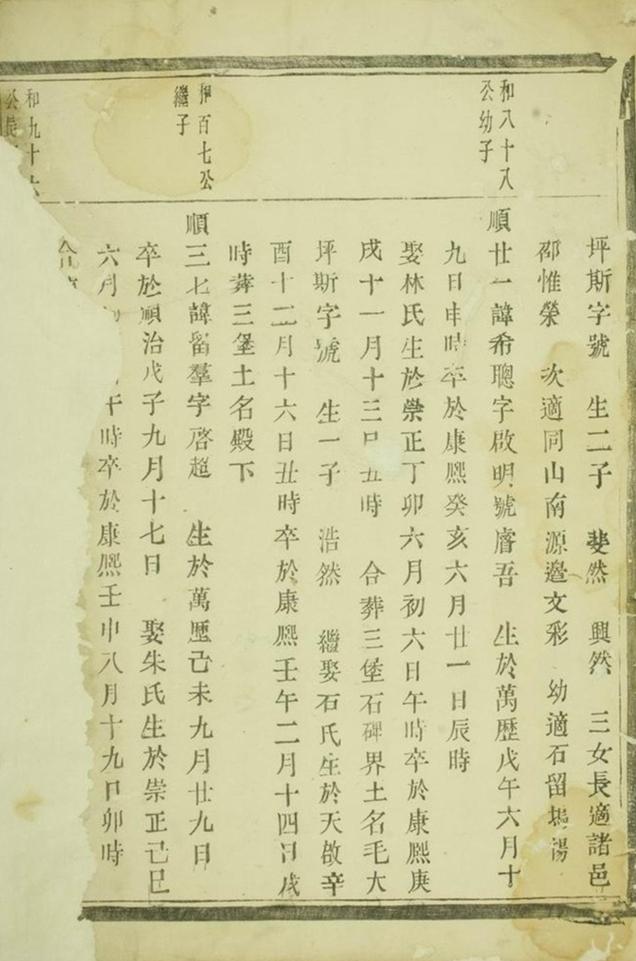 坪斯字號　生二子　斐然　興然　三女長適諸邑
邵惟榮　次適同山南源邉文彩　幼適石留塢湯
和八十八
公幼子
順廿一諱希聰字啟明號睿吾　生於萬歷戊午六月十
九日申時卒於康熙癸亥六月廿一日辰時
娶林氏生於崇正丁卯六月初六日午時卒於康熙庚
戌十一月十三日丑時　合葬三堡石碑界土名毛大
坪斯字號　生一子　浩然　繼娶石氏生於天啟辛
酉十二月十六日丑時卒於康熙壬午二月十四日戌
時葬三堡土名殿下
和百七公
繼子
順三七諱留羣字啓超　生於萬歷己未九月廿九日
卒於順治戊子九月十七日　娶朱氏生於崇正己巳
六月　午時卒於康熙壬申八月十九日卯時
和九十六
公長
合